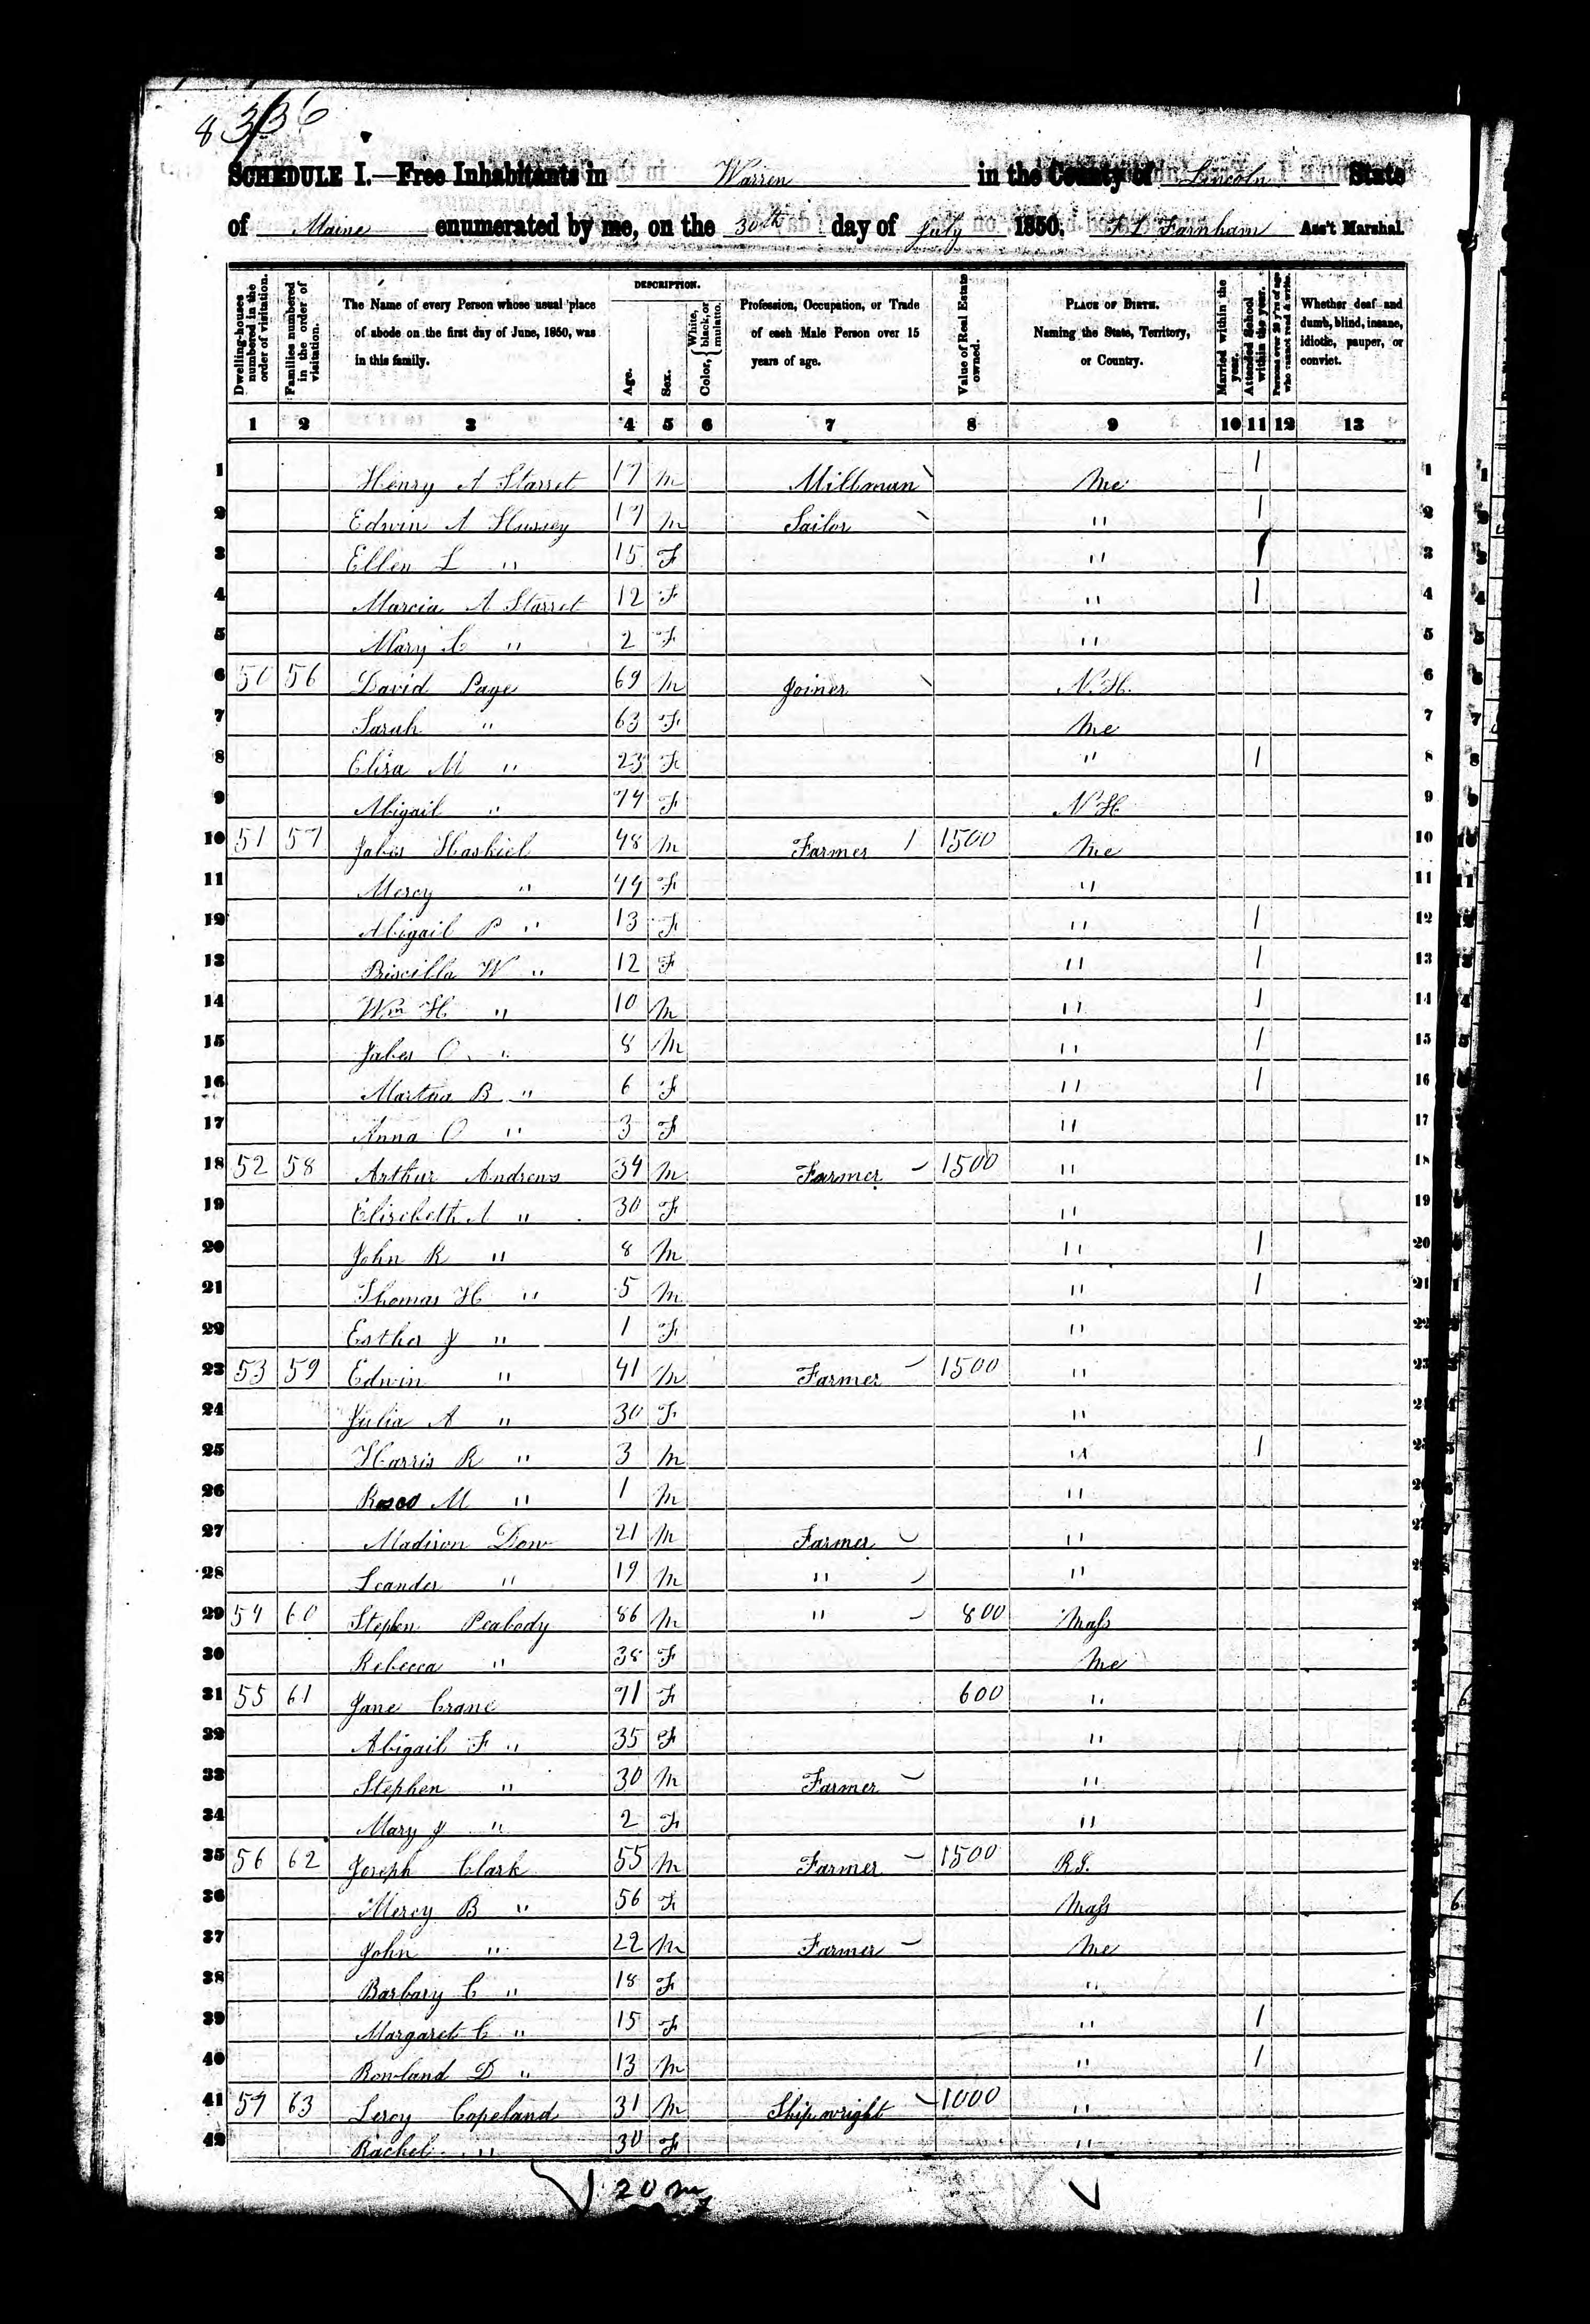 8 336
SCHEDULE I.—Free Inhabitants in Warren in the County of Lincoln State
of Maine enumerated by me, on the 30th day of July 1850. F L Farnham Ass't Marshal.
Dwelling-houses numbered in the order of visitation. Families numbered in the order of visitation. The Name of every Person whose usual place of abode on the first day of June, 1850, was in this family. DESCRIPTION. Age. Sex. Color, { White, black, or mulatto. Profession, Occupation, or Trade of each Male Person over 15 years of age. Value of Real Estate owned. PLACE OF BIRTH. Naming the State, Territory, or Country. Married within the year. Attended School within the year. Persons over 20 y'rs of age who cannot read & write. Whether deaf and dumb, blind, insane, idiotic, pauper, or convict.
1 2 3 4 5 6 7 8 9 10 11 12 13
1 Henry A Starret 17 M Millman Me 1 1
2 Edwin A Hussey 17 M Sailor " 1 2
3 Ellen L " 15 F " 1 3
4 Marcia A Starret 12 F " 1 4
5 Mary C " 2 F " 5
6 50 56 David Page 69 M Joiner N.H. 6
7 Sarah " 63 F Me 7
8 Elisa M " 23 F " 1 8
9 Abigail " 74 F N H 9
10 51 57 Jabes Haskiel 48 M Farmer 1500 Me 10
11 Mercy " 44 F " 11
12 Abigail P " 13 F " 1 12
13 Priscilla W " 12 F " 1 13
14 Wm H " 10 M " 1 14
15 Jabes O. " 8 M " 1 15
16 Martha B " 6 F " 1 16
17 Anna O " 3 F " 17
18 52 58 Arthur Andrews 34 M Farmer 1500 " 18
19 Elizebeth A " 30 F " 19
20 John R " 8 M " 1 20
21 Thomas H " 5 M " 1 21
22 Esther J " 1 F " 22
23 53 59 Edwin " 41 M Farmer 1500 " 23
24 Julia A " 30 F " 24
25 Harris R " 3 M " 1 25
26 Rosco M " 1 M " 26
27 Madison Dow 21 M Farmer "
28 Leander " 19 M " "
29 54 60 Stephen Peabody 86 M " 800 Mass
30 Rebecca " 38 F Me
31 55 61 Jane Crane 71 F 600 "
32 Abigail F " 35 F "
33 Stephen " 30 M Farmer "
34 Mary J " 2 F "
35 56 62 Joseph Clark 55 M Farmer 1500 R.I.
36 Mercy B " 56 F Mass
37 John " 22 M Farmer Me
38 Barbary C " 18 F "
39 Margaret C " 15 F " 1
40 Rowland D " 13 M " 1
41 57 63 Leroy Copeland 31 M Ship wright 1000 "
42 Rachel " 30 F "
20 m